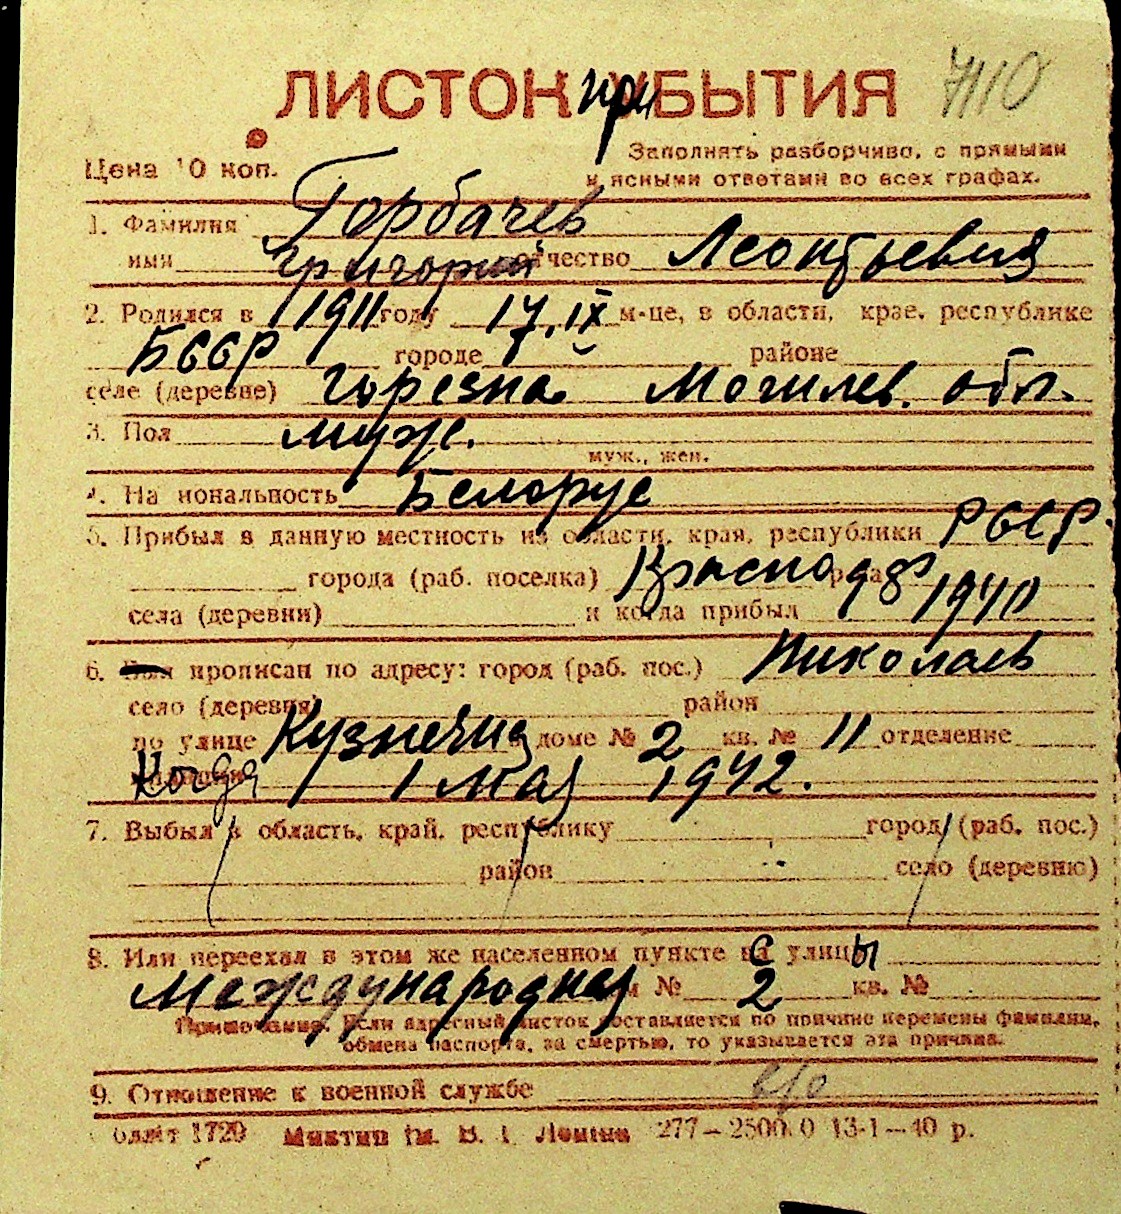 7110
ЛИСТОК при БЫТИЯ
Цена 10 коп.
Заполнять разборчиво, с прямыми
и ясными ответами во всех графах.
1. Фамилия Горбачев
имя Григорий отчество Леонтьевич
2. Родился в 1911 году 17.IX м-це, в области, крае, республике
БССР городе районе
селе (деревне) Могилев. обл.
3. Пол муж.
муж., жен.
4. Национальность Белорус
5. Прибыл в данную местность из области, края, республики РСФСР
города (раб. поселка) Краснодар района
села (деревни) и когда прибыл 1940
6. прописан по адресу: город (раб. пос.) Николаев
село (деревня) район
по улице Кузнечная доме № 2 кв. № 11 отделение
Когда 1 Мая 1942.
7. Выбыл в область, край, республику город (раб. пос.)
район село (деревню)
8. Или переехал в этом же населенном пункте с улицы
Международная № 2 кв. №
Примечание. Если адресный листок составляется по причине перемены фамилии,
обмена паспорта, за смертью, то указывается эта причина.
9. Отношение к военной службе в/о
1729 277—2500.0 13-1—40 р.